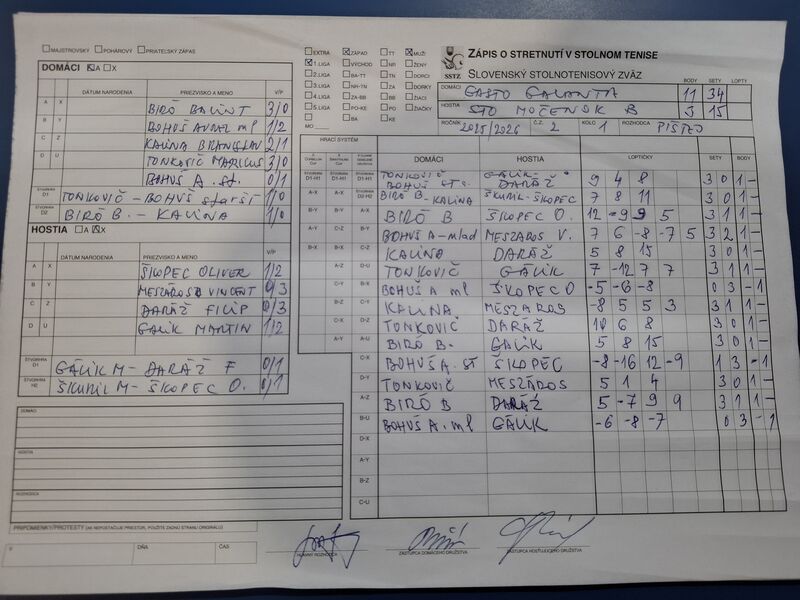 MAJSTROVSKÝ POHÁROVÝ PRIATEĽSKÝ ZÁPAS
DOMÁCI A X
DÁTUM NARODENIA PRIEZVISKO A MENO V/P
A X BIRÓ BALINT 3/0
B Y BOHUŠ ml 1/2
C Z KALINA BRANISLAV 2/1
D U TONKOVIČ MARICUS 3/0
BOHUŠ A. st. 0/1
ŠTVORHRA D1 TONKOVIČ - BOHUŠ starší 1/0
ŠTVORHRA D2 BIRÓ B. - KALINA 1/0
HOSTIA A X
DÁTUM NARODENIA PRIEZVISKO A MENO V/P
A X ŠKOPEC OLIVER 1/2
B Y MESZÁROS VINCENT 0/3
C Z DARÁŽ FILIP 0/3
D U GALIK MARTIN 1/2
ŠTVORHRA GÁLIK M - DARÁŽ F 0/1
ŠTVORHRA H2 ŠKUHIL M - ŠKOPEC O. 0/1
DOMÁCI
HOSTIA
ROZHODCA
PRIPOMIENKY/PROTESTY (AK NEPOSTAČUJE PRIESTOR, POUŽITE ZADNÚ STRANU ORIGINÁLU)
V DŇA ČAS
EXTRA ZÁPAD TT MUŽI
1.LIGA VÝCHOD NR ŽENY
2.LIGA BA-TT TN DORCI
3.LIGA NR-TN ZA DORKY
4.LIGA ZA-BB BB ŽIACI
5.LIGA PO-KE PO ŽIAČKY
BA KE
MO
SSTZ
ZÁPIS O STRETNUTÍ V STOLNOM TENISE
SLOVENSKÝ STOLNOTENISOVÝ ZVÄZ
BODY SETY LOPTY
DOMÁCI GASTO GALANTA 11 34
HOSTIA STO MOČENOK B 3 15
ROČNÍK 2025/2026 Č.Z. 2 KOLO 1 ROZHODCA PIŠTEJ
HRACÍ SYSTÉM
DOMÁCI HOSTIA LOPTIČKY SETY BODY
D1-H1 D1-H1 TONKOVIČ BOHUŠ st. GÁLIK DARÁŽ 9 4 8 3 0 1 -
A-X A-X D2-H2 BIRÓ B - KALINA ŠKUHIL - ŠKOPEC 7 8 11 3 0 1 -
B-Y B-Y A-X BIRÓ B ŠKOPEC O. 12 -9 9 5 3 1 1 -
A-Y C-Z B-Y BOHUŠ A - mlad MESZAROS V. 7 6 -8 -7 5 3 2 1 -
B-X B-X C-Z KALINA DARÁŽ 5 8 15 3 0 1 -
A-Z D-U TONKOVIČ GÁLIK 7 -12 7 7 3 1 1 -
C-Y B-X BOHUŠ A ml ŠKOPEC O -5 -6 -8 0 3 - 1
B-Z C-Y KALINA MESZAROS -8 5 5 3 3 1 1 -
C-X D-Z TONKOVIČ DARÁŽ 10 6 8 3 0 1 -
A-U BIRÓ B. GALIK 5 8 15 3 0 1 -
C-X BOHUŠ A. ST ŠKOPEC -8 -16 12 -9 1 3 - 1
D-Y TONKOVIČ MESZÁROS 5 1 4 3 0 1 -
A-Z BIRÓ B DARÁŽ 5 -7 9 9 3 1 1 -
B-U BOHUŠ A. ml GÁLIK -6 -8 -7 0 3 - 1
D-X
A-Y
B-Z
C-U
HLAVNÝ ROZHODCA ZÁSTUPCA DOMÁCEHO DRUŽSTVA ZÁSTUPCA HOSŤUJÚCEHO DRUŽSTVA